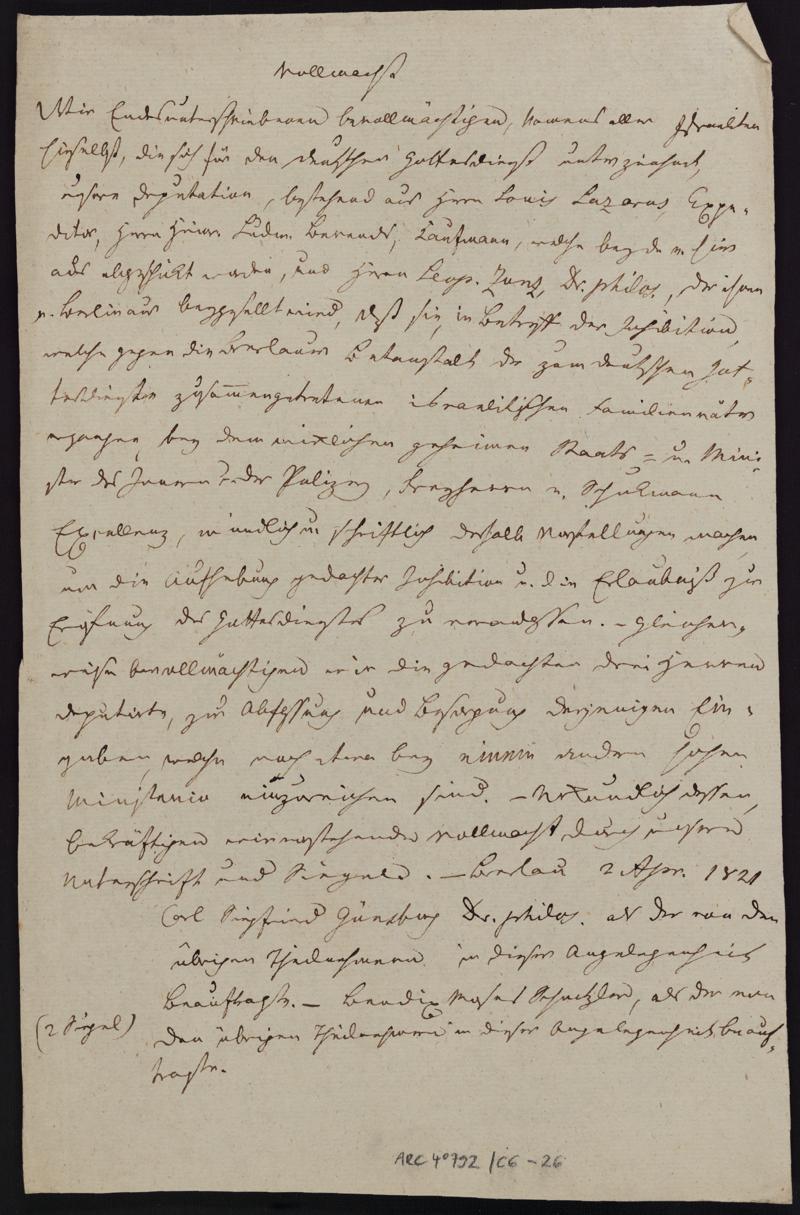 Vollmacht
Wir Endesunterschriebenen bevollmächtigen, Namens aller Israeliten
hieselbst, die sich für den deutschen Gottesdienst unterzeichnet,
unsere Deputation, bestehend aus Herrn Louis Lazarus, Expe-
ditor, Herrn Heinr. Ludw. Berends, Kaufmann, welche beyde v. hier
aus abgeschickt werden, und Herrn Leop. Zunz, Dr. philos., der ihnen
v. Berlin aus beygesellt wird, daß sie, in Betreff der Inhibition,
welche gegen die Breslauer Betanstalt der zum deutschen Got-
tesdienste zusammengetretenen israelitischen Familienväter
ergangen, bey dem wirklichen geheimen Staats- u. Mini-
ster des Innern u. der Polizey, Freyherrn v. Schukmann
Excellenz, mündlich u. schriftlich deshalb Vorstellungen machen
um die Aufhebung gedachter Inhibition u. die Erlaubniß zur
Eröfnung des Gottesdienstes zu veranlassen. – Gleicher-
weise bevollmächtigen wir die gedachten drei Herren
Deputirte, zur Abfassung und Besorgung derjenigen Ein-
gaben, welche noch etwa bey einem andern hohen
Ministerio einzureichen sind. – Urkundlich dessen,
bekräftigen wir vorstehende Vollmacht durch unsere
Unterschrift und Siegel. – Breslau 2 Apr. 1821
Carl Siegfried Günsburg Dr. philos. als der von den
übrigen Theilnehmern in dieser Angelegenheit
Beauftragte. – Bendix Moses, als der von
(2 Siegel) den übrigen Theilnehmern in dieser Angelegenheit beauf-
tragte.
ARC 4° 792 /C6 - 26